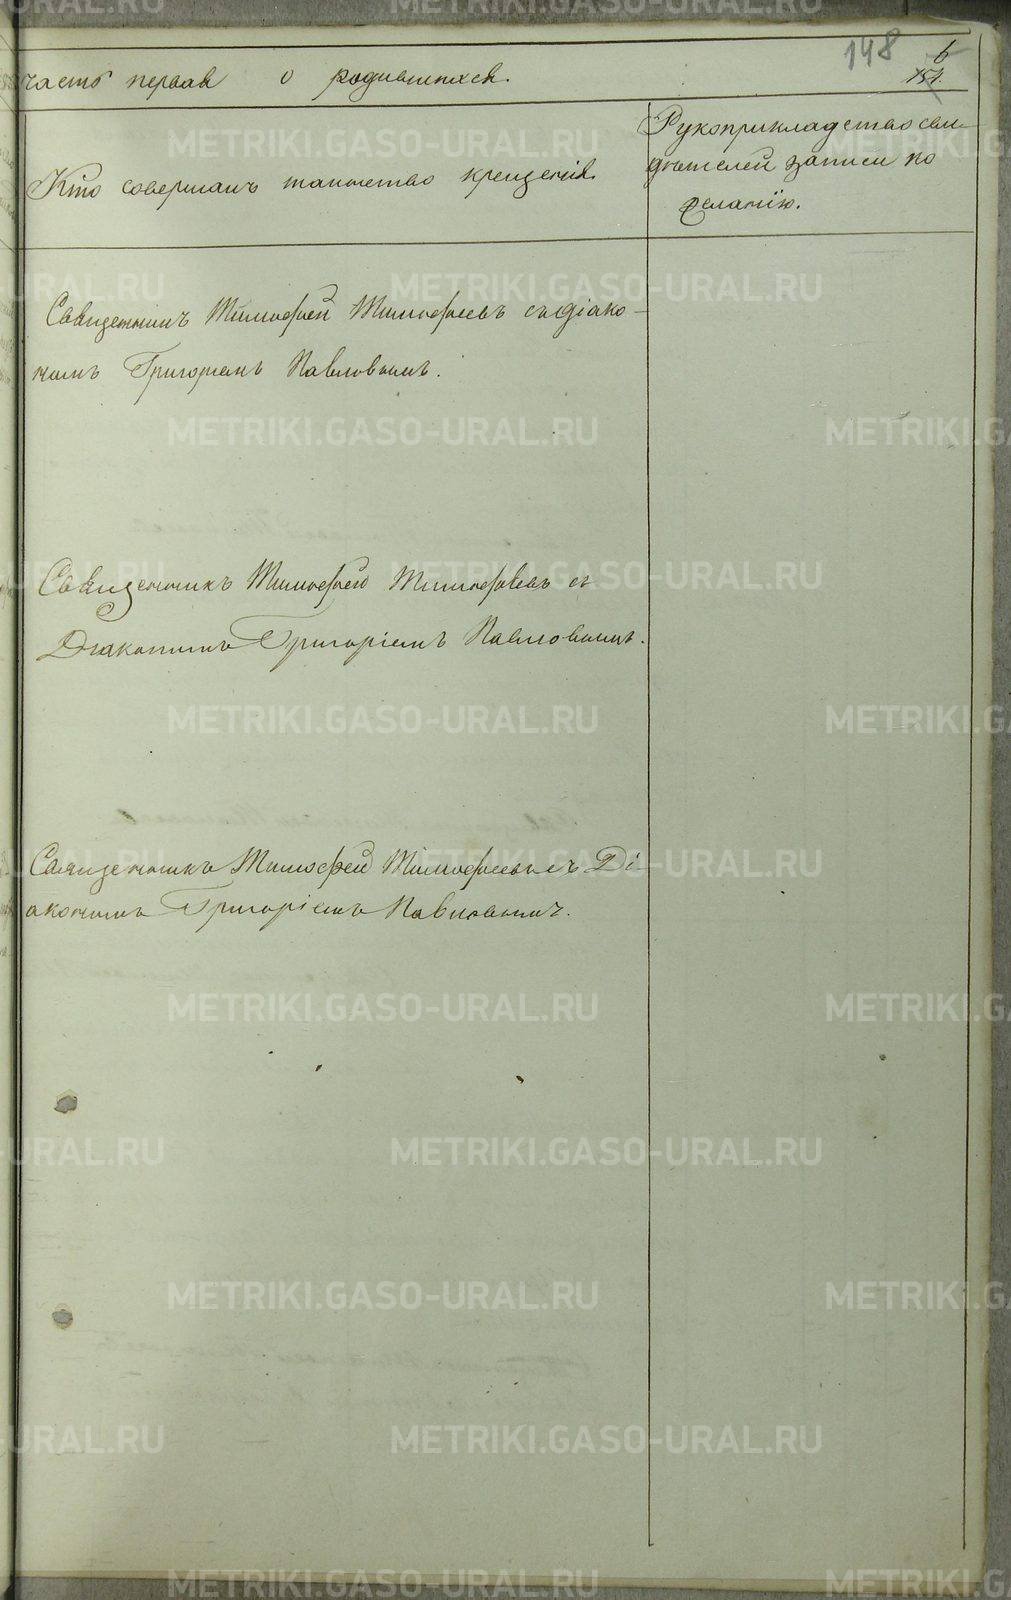 148
6
151.
часть первая о родившихся.
Кто совершалъ таинство крещенія.
Рукоприкладство сви-
дѣтелей записи по
желанію.
Священникъ Тимофей Тимофеевъ съ діако-
номъ Григоріемъ Павловымъ.
Священникъ Тимофей Тимофеевъ съ
Діакономъ Григоріемъ Павловымъ.
Священникъ Тимофей Тимофеевъ съ Ді-
акономъ Григоріемъ Павловымъ.
METRIKI.GASO-URAL.RU